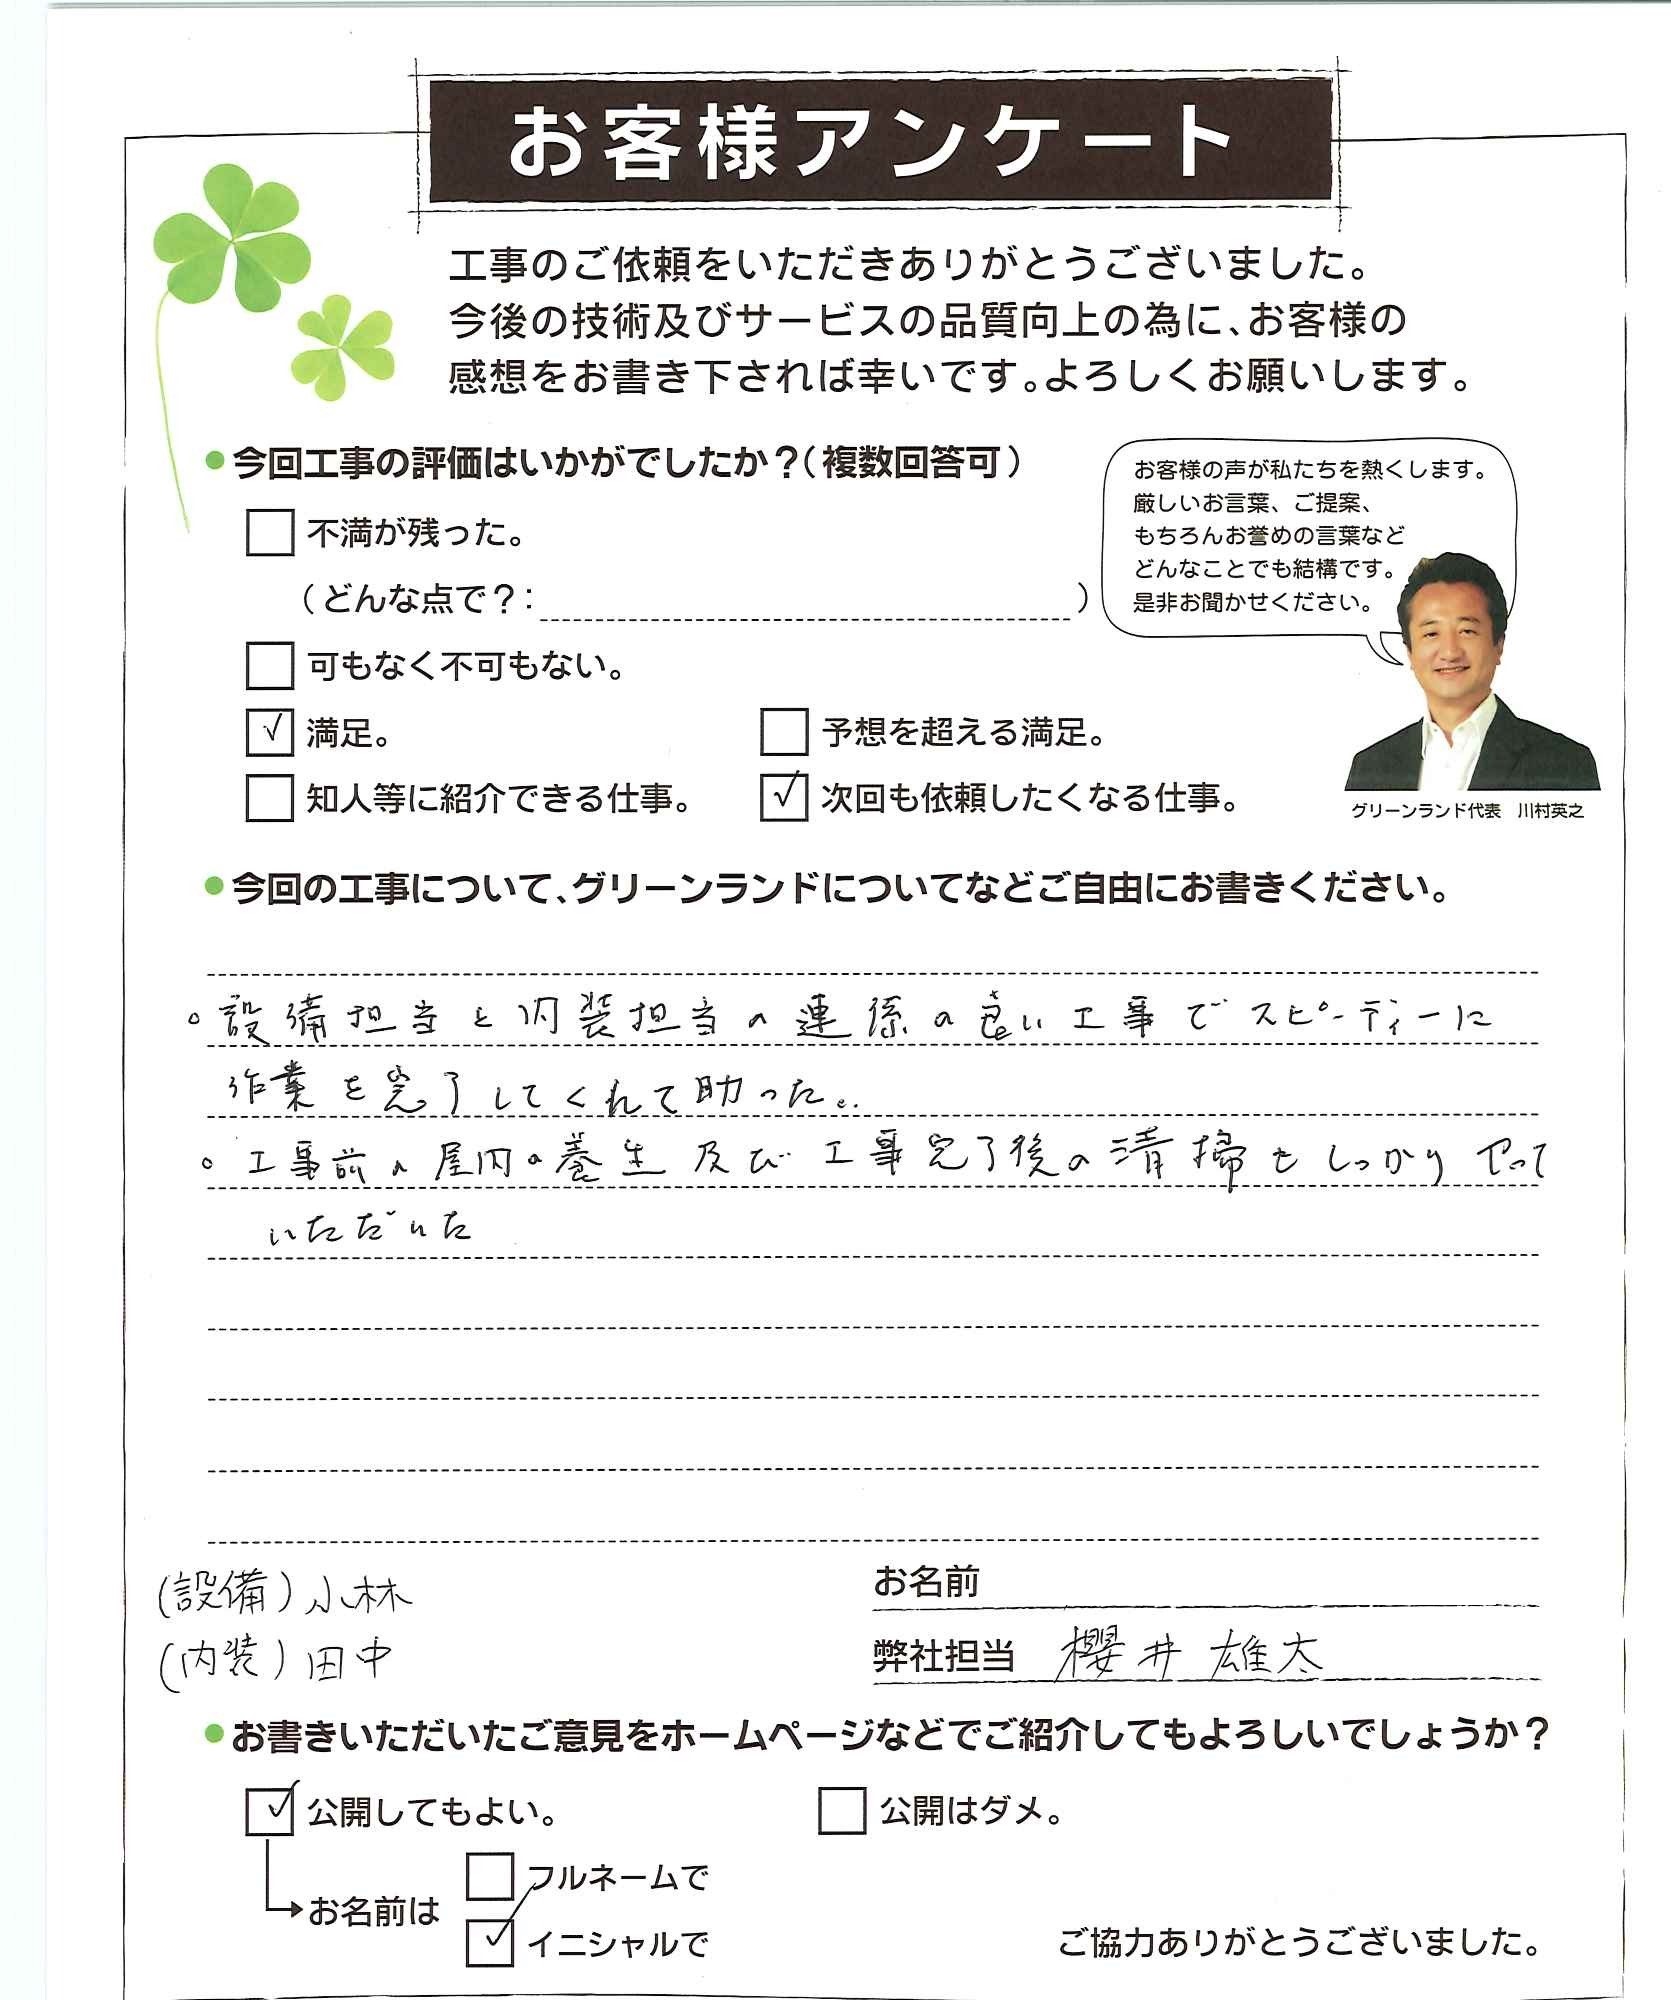 お客様アンケート
工事のご依頼をいただきありがとうございました。
今後の技術及びサービスの品質向上の為に、お客様の
感想をお書き下されば幸いです。よろしくお願いします。
●今回工事の評価はいかがでしたか？（複数回答可）
お客様の声が私たちを熱くします。
厳しいお言葉、ご提案、
もちろんお誉めの言葉など
どんなことでも結構です。
是非お聞かせください。
□ 不満が残った。
（どんな点で？： ）
□ 可もなく不可もない。
☑ 満足。 □ 予想を超える満足。
□ 知人等に紹介できる仕事。 ☑ 次回も依頼したくなる仕事。
グリーンランド代表 川村英之
●今回の工事について、グリーンランドについてなどご自由にお書きください。
○設備担当と内装担当の連係の良い工事でスピーディーに
作業を完了してくれて助った。
○工事前の屋内の養生及び工事完了後の清掃もしっかりやって
いただいた
(設備)小林
(内装)田中
お名前
弊社担当 櫻井 雄太
●お書きいただいたご意見をホームページなどでご紹介してもよろしいでしょうか？
☑ 公開してもよい。 □ 公開はダメ。
お名前は □ フルネームで
☑ イニシャルで
ご協力ありがとうございました。